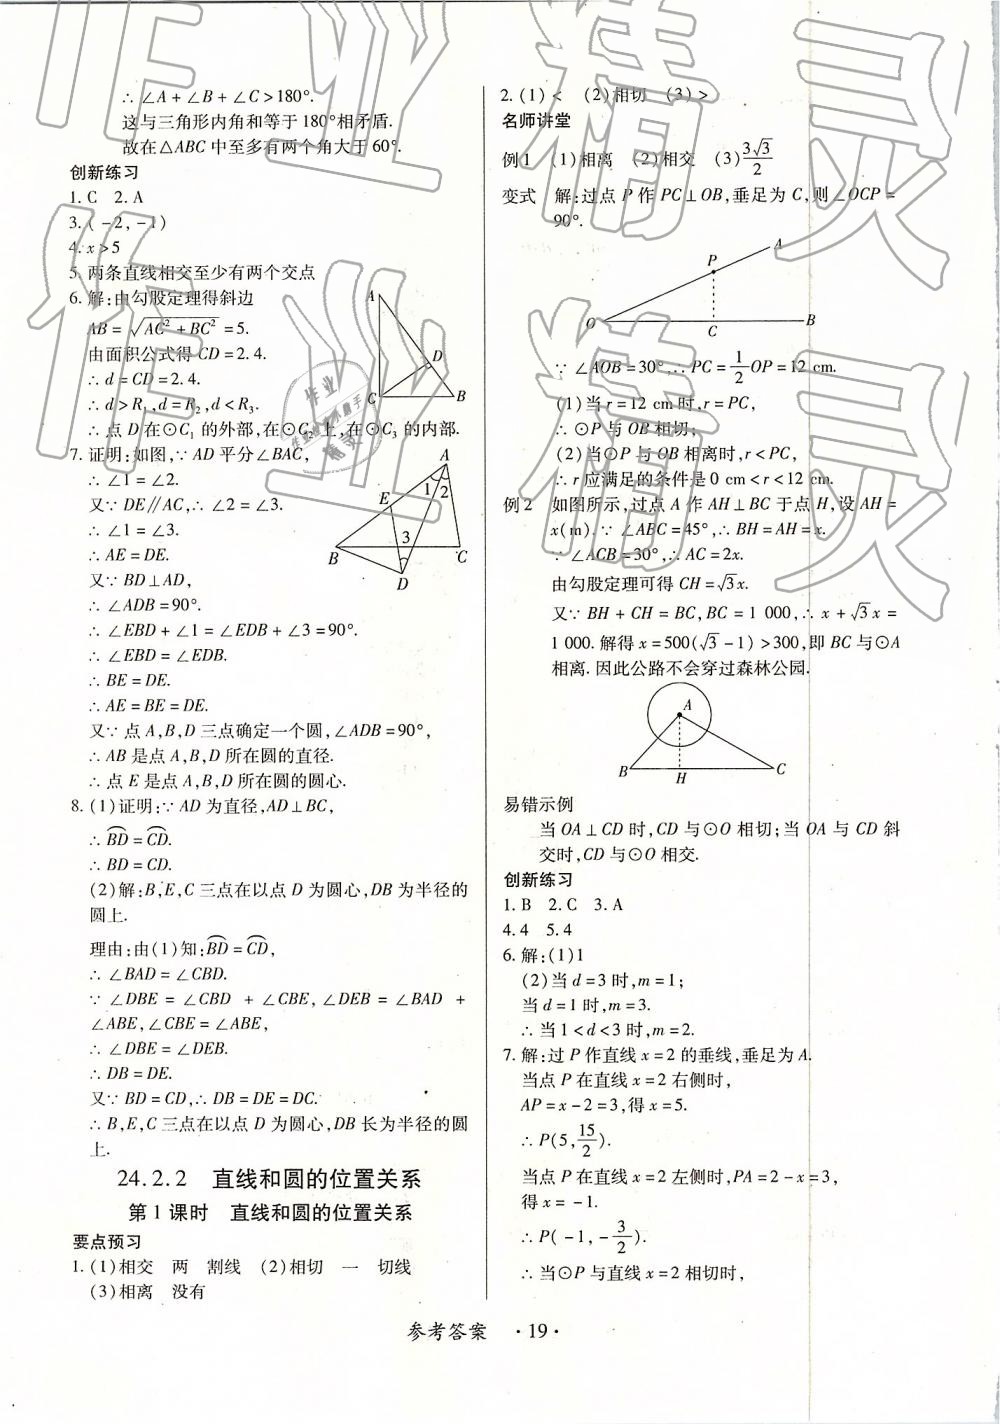 ∴ ∠A + ∠B + ∠C > 180°.
这与三角形内角和等于180°相矛盾.
故在△ABC 中至多有两个角大于60°.
创新练习
1. C 2. A
3. (-2, -1)
4. x > 5
5. 两条直线相交至少有两个交点
6. 解:由勾股定理得斜边
AB = √(AC² + BC²) = 5.
由面积公式得 CD = 2.4.
∴ d = CD = 2.4.
∴ d > R₁, d = R₂, d < R₃.
∴ 点 D 在⊙C₁ 的外部,在⊙C₂ 上,在⊙C₃ 的内部.
A
D
C
B
7. 证明:如图,∵ AD 平分∠BAC,
∴ ∠1 = ∠2.
又∵ DE∥AC,∴ ∠2 = ∠3.
∴ ∠1 = ∠3.
∴ AE = DE.
又∵ BD⊥AD,
∴ ∠ADB = 90°.
∴ ∠EBD + ∠1 = ∠EDB + ∠3 = 90°.
∴ ∠EBD = ∠EDB.
∴ BE = DE.
∴ AE = BE = DE.
又∵ 点 A,B,D 三点确定一个圆,∠ADB = 90°,
∴ AB 是点 A,B,D 所在圆的直径.
∴ 点 E 是点 A,B,D 所在圆的圆心.
A
1 2
E
3
B
C
D
8. (1)证明:∵ AD 为直径,AD⊥BC,
∴ BD = CD.
∴ BD = CD.
(2)解:B,E,C 三点在以点 D 为圆心,DB 为半径的
圆上.
理由:由(1)知:BD = CD,
∴ ∠BAD = ∠CBD.
∵ ∠DBE = ∠CBD + ∠CBE, ∠DEB = ∠BAD +
∠ABE, ∠CBE = ∠ABE,
∴ ∠DBE = ∠DEB.
∴ DB = DE.
又∵ BD = CD,∴ DB = DE = DC.
∴ B,E,C 三点在以点 D 为圆心,DB 长为半径的圆
上.
24.2.2 直线和圆的位置关系
第1课时 直线和圆的位置关系
要点预习
1. (1)相交 两 割线 (2)相切 一 切线
(3)相离 没有
2. (1) < (2)相切 (3) >
名师讲堂
例1 (1)相离 (2)相交 (3) 3√3/2
变式 解:过点 P 作 PC⊥OB,垂足为 C,则∠OCP =
90°.
A
P
O
C
B
∵ ∠AOB = 30°,∴ PC = 1/2 OP = 12 cm.
(1)当 r = 12 cm 时, r = PC,
∴ ⊙P 与 OB 相切;
(2)当⊙P 与 OB 相离时, r < PC,
∴ r 应满足的条件是 0 cm < r < 12 cm.
例2 如图所示,过点 A 作 AH⊥BC 于点 H,设 AH =
x(m). ∵ ∠ABC = 45°,∴ BH = AH = x.
∵ ∠ACB = 30°,∴ AC = 2x.
由勾股定理可得 CH = √3x.
又∵ BH + CH = BC, BC = 1 000,∴ x + √3x =
1 000. 解得 x = 500(√3 - 1) > 300,即 BC 与⊙A
相离. 因此公路不会穿过森林公园.
A
B
H
C
易错示例
当 OA⊥CD 时,CD 与⊙O 相切;当 OA 与 CD 斜
交时,CD 与⊙O 相交.
创新练习
1. B 2. C 3. A
4. 4 5. 4
6. 解:(1)1
(2)当 d = 3 时, m = 1;
当 d = 1 时, m = 3.
∴ 当 1 < d < 3 时, m = 2.
7. 解:过 P 作直线 x = 2 的垂线,垂足为 A.
当点 P 在直线 x = 2 右侧时,
AP = x - 2 = 3,得 x = 5.
∴ P(5, 15/2).
当点 P 在直线 x = 2 左侧时, PA = 2 - x = 3,
得 x = -1.
∴ P(-1, -3/2).
∴ 当⊙P 与直线 x = 2 相切时,
参考答案 · 19 ·
作业精灵
作业精灵